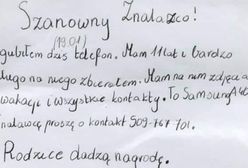 Szanowny Znalazco!
gubiłem dziś telefon. Mam 11 lat i bardzo
(19.01)
ługo na niego zbierałem. Mam na nim zdjęcia
wakacji i wszystkie kontakty. To Samsung
nalazcę proszę o kontakt 509-767-701.
Rodzice dadzą nagrodę.